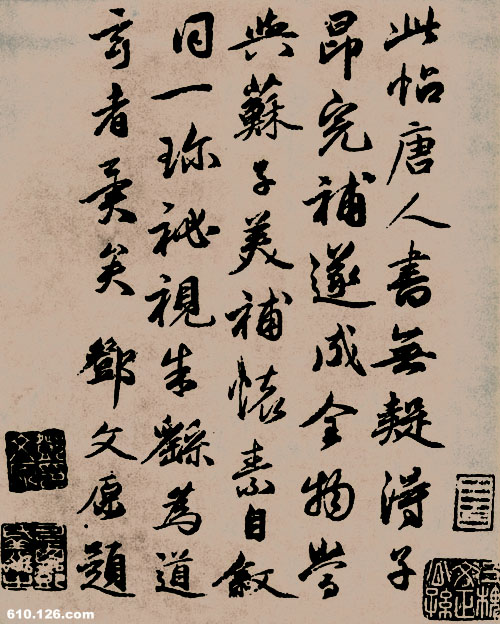 此帖唐人書無疑得子
昂完補遂成全物當
與蘇子美補懷素自敘
同一珎祕視朱繇為道
玄者異矣 鄧文原題
610.126.com